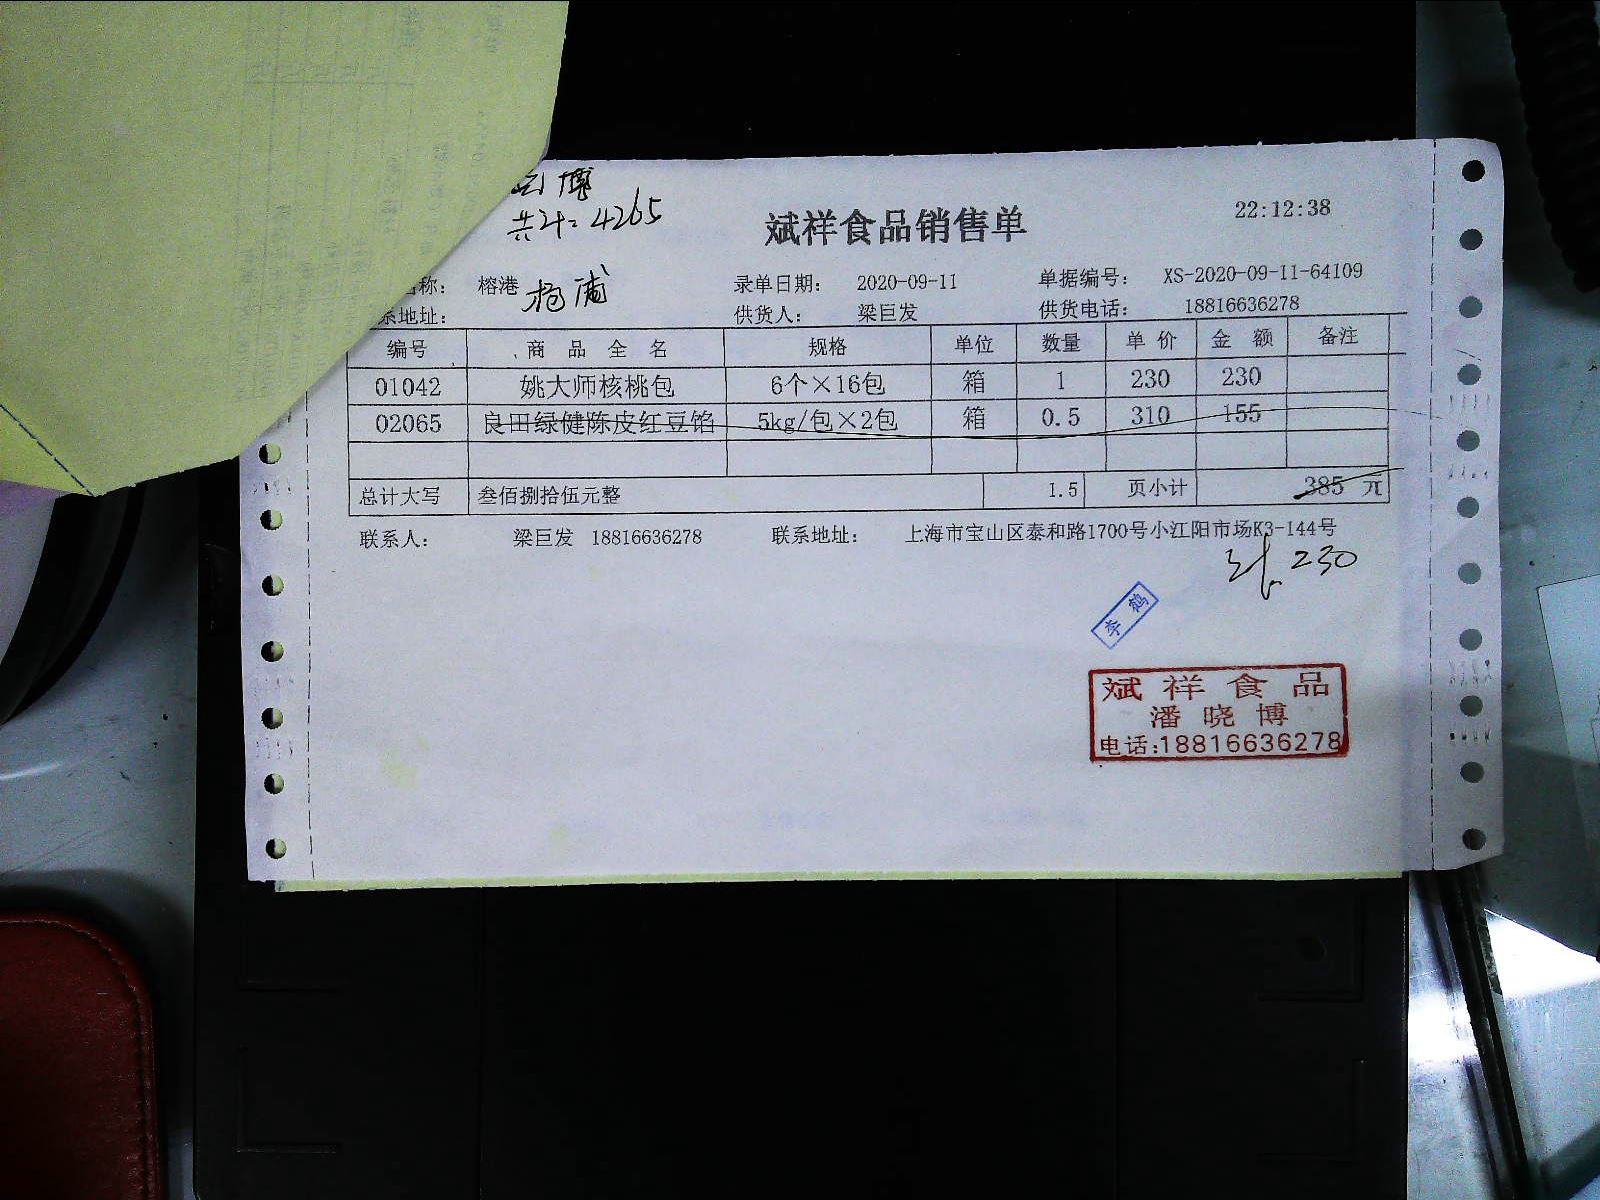 博
共计: 4265
斌祥食品销售单
22:12:38
名称: 榕港 杨浦 录单日期: 2020-09-11 单据编号: XS-2020-09-11-64109
系地址: 供货人: 梁巨发 供货电话: 18816636278
编号 商品全名 规格 单位 数量 单价 金额 备注
01042 姚大师核桃包 6个×16包 箱 1 230 230
02065 良田绿健陈皮红豆馅 5kg/包×2包 箱 0.5 310 155
总计大写 叁佰捌拾伍元整 1.5 页小计 385 元
联系人: 梁巨发 18816636278 联系地址: 上海市宝山区泰和路1700号小江阳市场K3-144号
230
李鹤
斌祥食品
潘晓博
电话:18816636278